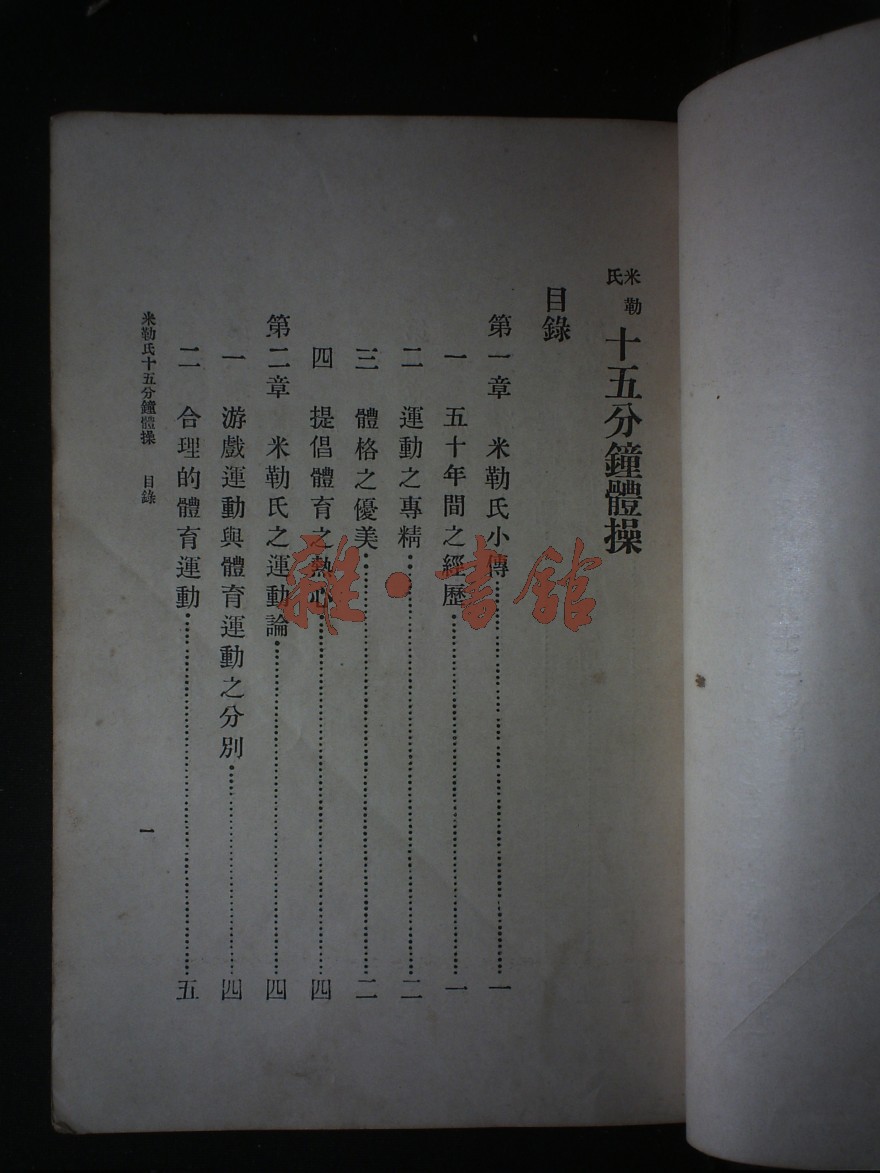 米勒氏十五分鐘體操
目錄
第一章 米勒氏小傳……一
一 五十年間之經歷……一
二 運動之專精……二
三 體格之優美……二
四 提倡體育之熱心……四
第二章 米勒氏之運動論……四
一 游戲運動與體育運動之分別……四
二 合理的體育運動……五
米勒氏十五分鐘體操 目錄 一
雜·書館